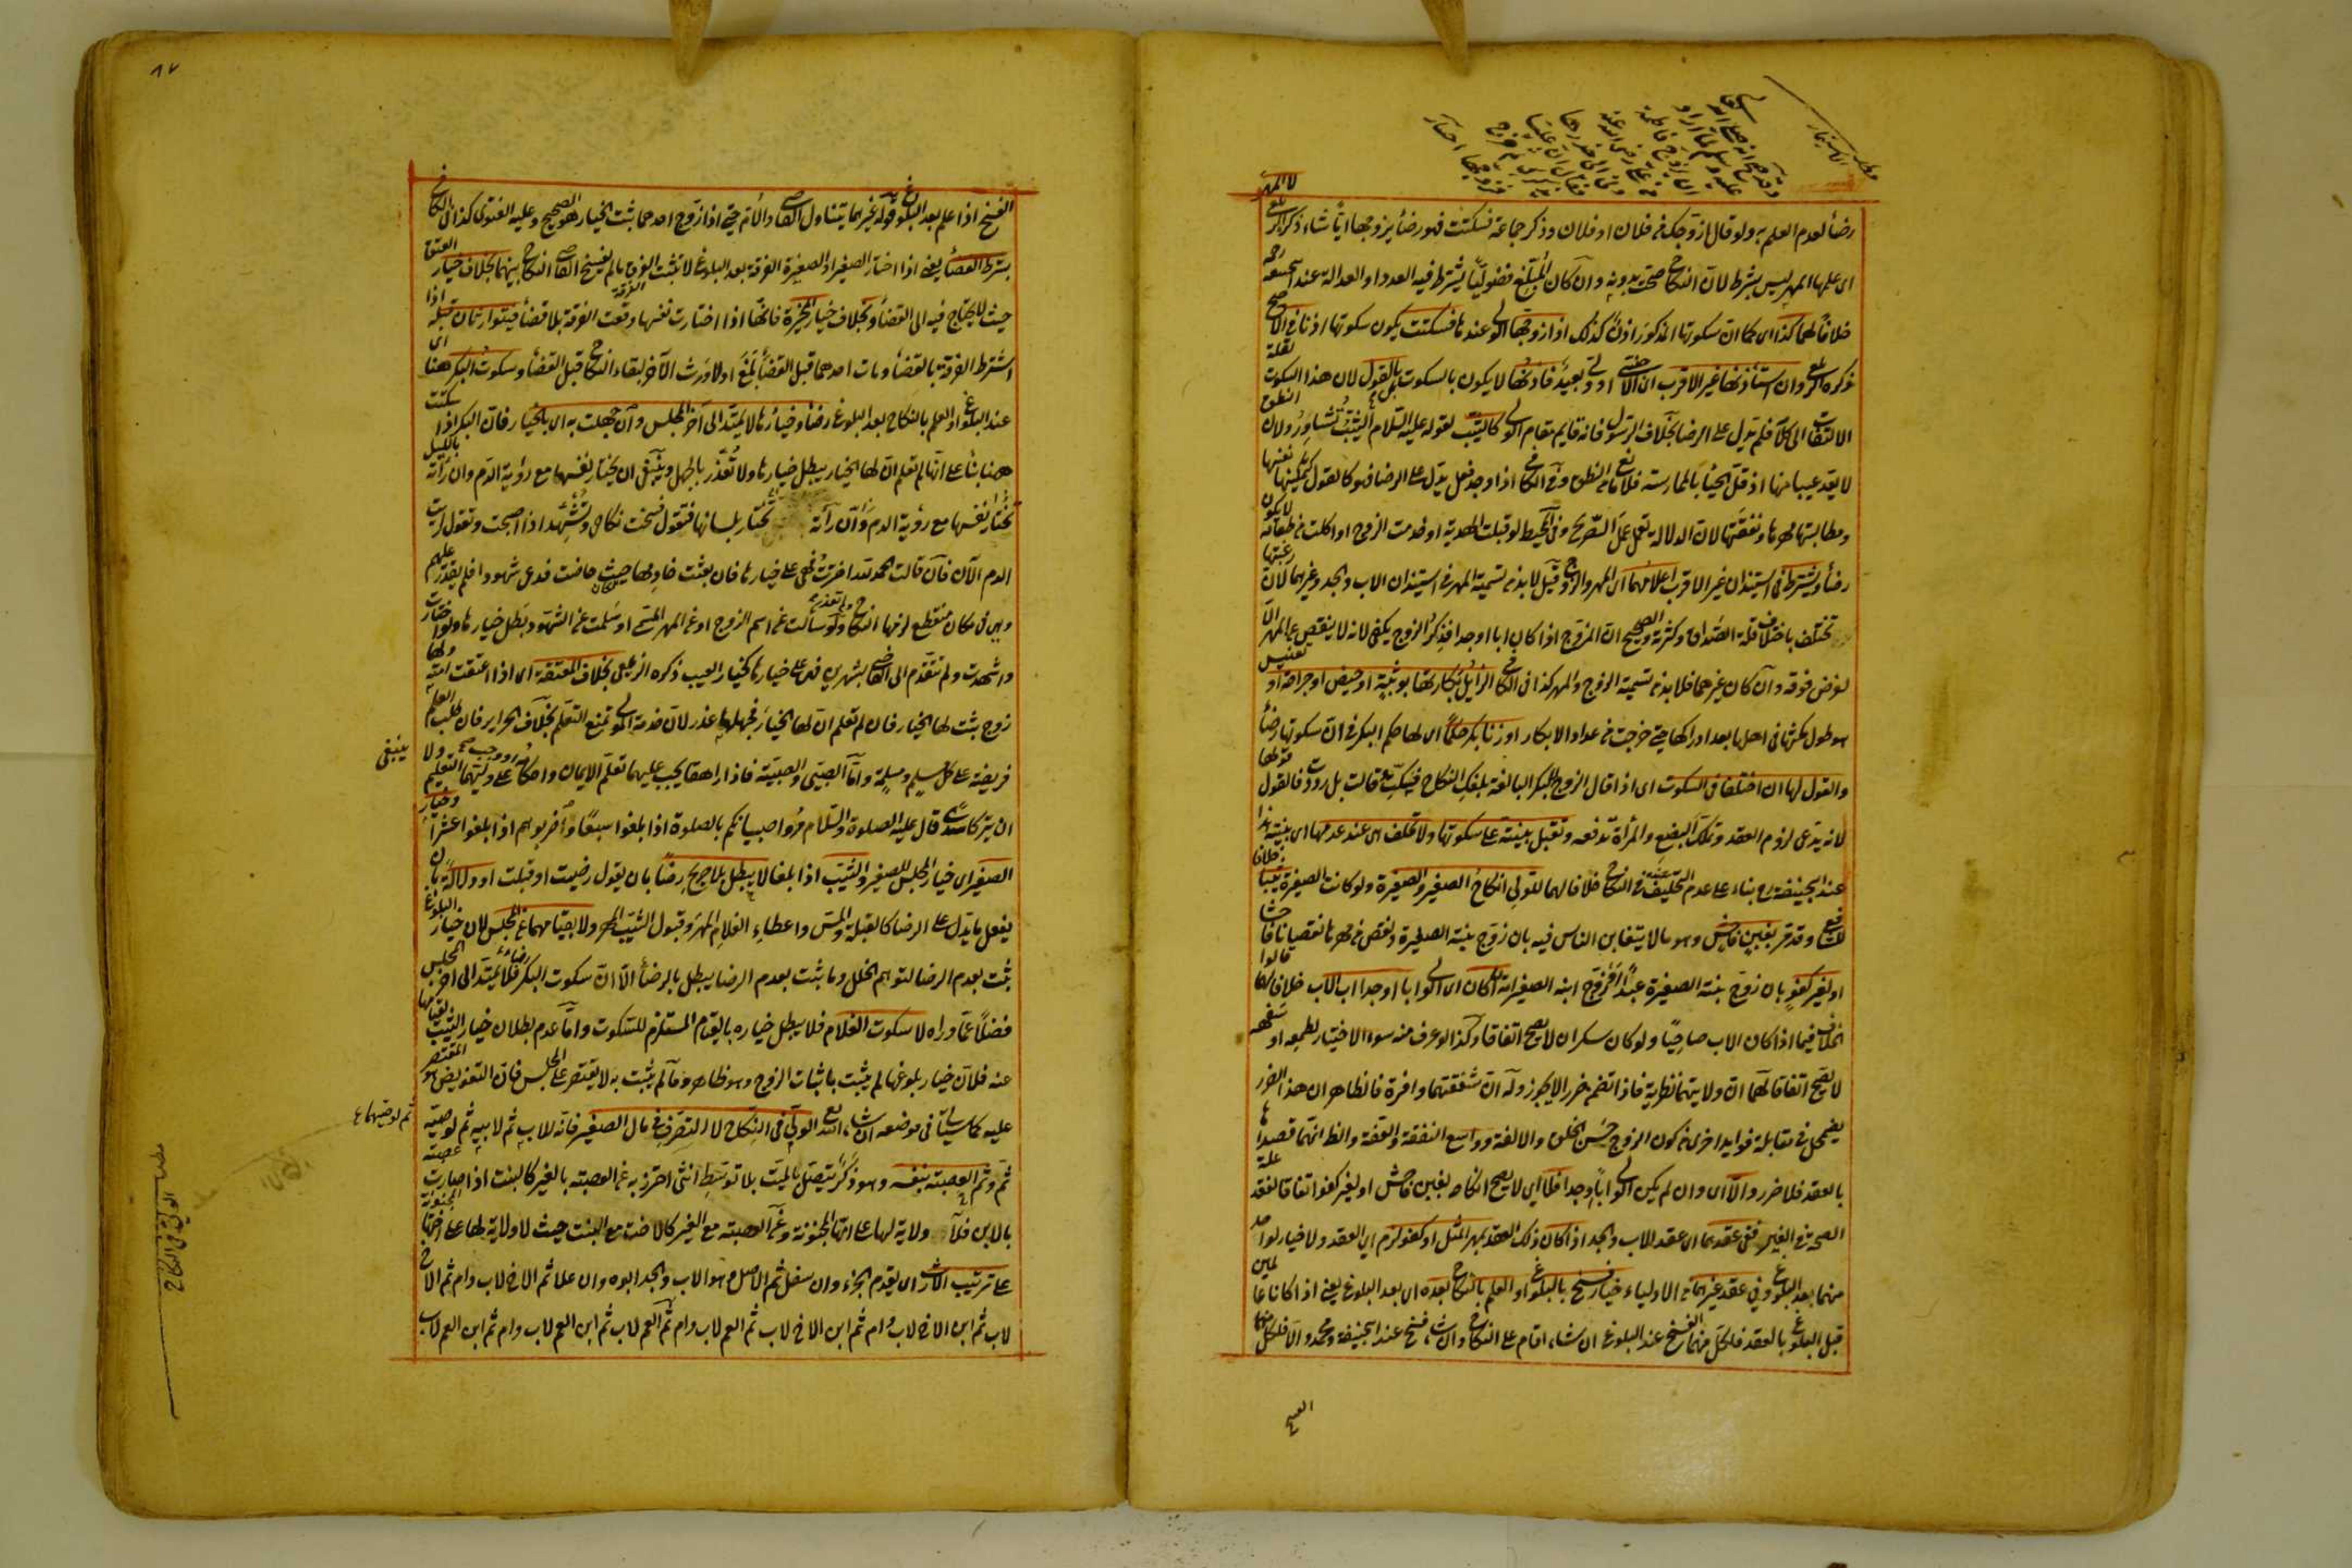 لا المهر
رضاً لعدم العلم به ولو قال ازوجك من فلان او فلان وذكر جماعة فسكتت فهو رضاً يزوجها اياً شاء ذكره الزيلعي
اى علمها المهر ليس بشرط لان النكاح صحة بدونه وان كان المبلغ فضولياً يشترط فيه العدد او العدالة عند ابيحنيفة رحمه
خلافاً لهما كذا اى كما ان سكوتها المذكور اذن كذلك اذا زوجها الولى عندها فسكتت يكون سكوتها اذنا فى الاصح
ذكره الزيلعي وان استأذنها غير الاقرب اى الاجنبى او ولى بعيد فاذنها لا يكون بالسكوت بل بالقول لان هذا السكوت لقلة
الالتفات الى كلامه فلم يدل على الرضا بخلاف الرسول فانه قايم مقام الولى كالثيب لقوله عليه السلام الثيب تشاور ولان النطق
لا يعد عيبا منها اذ قل الحيا بالممارسة فلا مانع من النطق وفى الكافى اذا وجد فعل يدل على الرضا فهو كالقول كتمكينها نفسها
ومطالبتها مهرها ونفقتها لان الدلالة تعمل عمل التصريح وفى المحيط لو قبلت الهدية او خدمت الزوج او اكلت من طعامه لا يكون
رضاً ويشترط فى استيذان غير الاقرب اعلامهما اى المهر والزوج وقيل لا بد من تسمية المهر فى استيذان الاب والجد وغيرهما لان رغبتها
تختلف باختلاف قلة الصداق وكثرته والصحيح ان المزوج اذا كان ابا او جدا فذكر الزوج يكفى لانه لا ينقص عن المهر الا
لغرض فوقه وان كان غيرهما فلا بد من تسمية الزوج والمهر كذا فى الكافى الزايل بكارتها بوثبة او حيض او جراحة او تعنيس
هو طول مكثها فى اهلها بعد ادراكها حتى خرجت من عداد الابكار او زنا بكر حكماً اى لها حكم البكر فى ان سكوتها رضاً
والقول لها ان اختلفا فى السكوت اى اذا قال الزوج للبكر البالغة بلغك النكاح فسكت وقالت بل رددت فالقول قولها
لانه يدعى لزوم العقد وتملك البضع والمرأة تدفعه وتقبل بينته على سكوتها ولا تحلف هى عند عدمها اى بينته هذا
عند ابيحنيفة رح بناء على عدم التحليف عنده فى النكاح خلافا لهما للولى انكاح الصغير والصغيرة ولو كانت الصغيرة ثيبا خلافا
للشافعى وقد مر بغبن فاحش وهو ما لا يتغابن الناس فيه بان زوج بنته الصغيرة ونقص من مهرها نقصانا فاحشا
او لغير كفو بان زوج بنته الصغيرة عبداً او زوج ابنه الصغير امة ان كان اى الولى ابا او جدا اب الاب خلافا لهما قالوا
الخلاف فيما اذا كان الاب صاحياً ولو كان سكران لا يصح اتفاقا وكذا لو عرف منه سوء الاختيار لطمعه او سفهه
لا يصح اتفاقا لهما ان ولايتهما نظرية فاذا تضمن ضررا لا يجوز وله ان شفقتهما وافرة فالظاهر ان هذا الضرر
يضمحل فى مقابلة فوايد اخرى من كون الزوج حسن الخلق والالفة وواسع النفقة والعفة والظ انهما قصداها
بالعقد فلا ضرر والا اى وان لم يكن الولى ابا او جدا فلا اى لا يصح انكاحه بغبن فاحش او لغير كفو اتفاقا لفقد علة
الصحة فى الغير ففى عقدهما اى عقد الاب والجد اذا كان ذلك العقد بمهر المثل او كفو لزم اى العقد ولا خيار لواحد
منهما بعد البلوغ وفى عقد غيرهما من الاولياء خيار فسخ بالبلوغ او العلم بالنكاح بعده اى بعد البلوغ يعنى اذا كانا عالمين
قبل البلوغ بالعقد فلكل منهما الفسخ عند البلوغ ان شاء اقام على النكاح وان شاء فسخ عند ابيحنيفة ومحمد والا فلكل منهما
الفسخ
٨٧
الفسخ اذا علم بعد البلوغ وقوله غيرهما يتناول القاضى والام حتى اذا زوج احدهما يثبت الخيار هو الصحيح وعليه الفتوى كذا فى الكافى
بشرط القضاً يعنى اذا اختار الصغير او الصغيرة الفرقة بعد البلوغ لا تثبت الفرقة ما لم يفسخ القاضى النكاح بينهما بخلاف خيار العتق
حيث لا يحتاج فيه الى القضاً وبخلاف خيار المخيرة فانها اذا اختارت نفسها وقعت الفرقة بلا قضاً فيتوارثان قبله اذا
اشترط الفرقة بالقضاً ومات احدهما قبل القضاً بلغ او لا ورث الآخر لبقاء النكاح قبل القضاً وسكوت البكر هنا اى
عند البلوغ او العلم بالنكاح بعد البلوغ رضاً وخيارها لا يمتد الى آخر المجلس وان جهلت به اى بالخيار فان البكر اذا سكتت
هنا بناً على انها لم تعلم ان لها الخيار يبطل خيارها ولا تعذر بالجهل وينبغى ان تختار نفسها مع رؤية الدم وان رأته بالليل
تختار نفسها مع رؤية الدم وان رأته تختار بلسانها فتقول فسخت نكاحى وتشهد اذا اصبحت وتقول رايت
الدم الآن فان قالت الحمد لله اخترت فهى على خيارها فان بعثت خادمها حيث حاضت فدعى شهودا فلم يقدر عليهم
وهى فى مكان منقطع لزمها النكاح ولم تعذر ولو سالت عن اسم الزوج او عن المهر المسمى او سلمت على الشهود بطل خيارها ولو اختارت
واشهدت ولم تتقدم الى القاضى بشهرين فهى على خيارها كخيار العيب ذكره الزيلعى بخلاف المعتقة اى اذا اعتقت امة ولها
زوج يثبت لها الخيار فان لم تعلم ان لها الخيار فجهلها عذر لان خدمة المولى تمنع التعلم بخلاف الحراير فان طلب العلم
فريضة على كل مسلم ومسلمة واما الصبى والصبية فاذا راهقا يجب عليهما تعلم الايمان واحكامه او وجب على وليهما التعليم ولا
ينبغى
ان يتركا سدى قال عليه الصلوة والسلام مروا صبيانكم بالصلوة اذا بلغوا سبعا واضربوهم اذا بلغوا عشرا وخيار
الصغير اى خيار المجلس للصغير والثيب اذا بلغا لا يبطل بلا صريح رضاً بان يقول رضيت او قبلت او دلالة بان
يفعل ما يدل على الرضا كالقبلة والمس واعطاء الغلام المهر وقبول الثيب المهر ولا بقيامهما عن المجلس لان خيار البلوغ
يثبت بعدم الرضا لتوهم الخلل وما يثبت بعدم الرضا يبطل بالرضاً الا ان سكوت البكر رضاء فلا يمتد الى آخر المجلس
فضلاً عما وراه لا سكوت الغلام فلا يبطل خياره بالقيام المستلزم للسكوت واما عدم بطلان خيار الثيب بقيامها
عنه فلان خيار بلوغها لم يثبت باثبات الزوج وهو ظاهر وما لم يثبت به لا يقتصر على المجلس فان التفويض هو المقتصر
عليه كما سيأتى فى موضعه ان شاء الله تع الولى فى النكاح لا التصرف فى مال الصغير فانه للاب ثم لابيه ثم لوصيه
ثم لوصيهما
ثم وثم العصبة بنفسه وهو ذكر يتصل بالميت بلا توسط انثى احترز به عن العصبة بالغير كالبنت اذا صارت عصبة
بالابن فلا ولاية لها على امها المجنونة وعن العصبة مع الغير كالاخت مع البنت حيث لا ولاية لها على اختها المجنونة
على ترتيب الارث اى يقدم الجزء وان سفل ثم الاصل وهو الاب والجد ابوه وان علا ثم الاخ لاب وام ثم الاخ
لاب ثم ابن الاخ لاب وام ثم ابن الاخ لاب ثم العم لاب وام ثم العم لاب ثم ابن العم لاب وام ثم ابن العم لاب